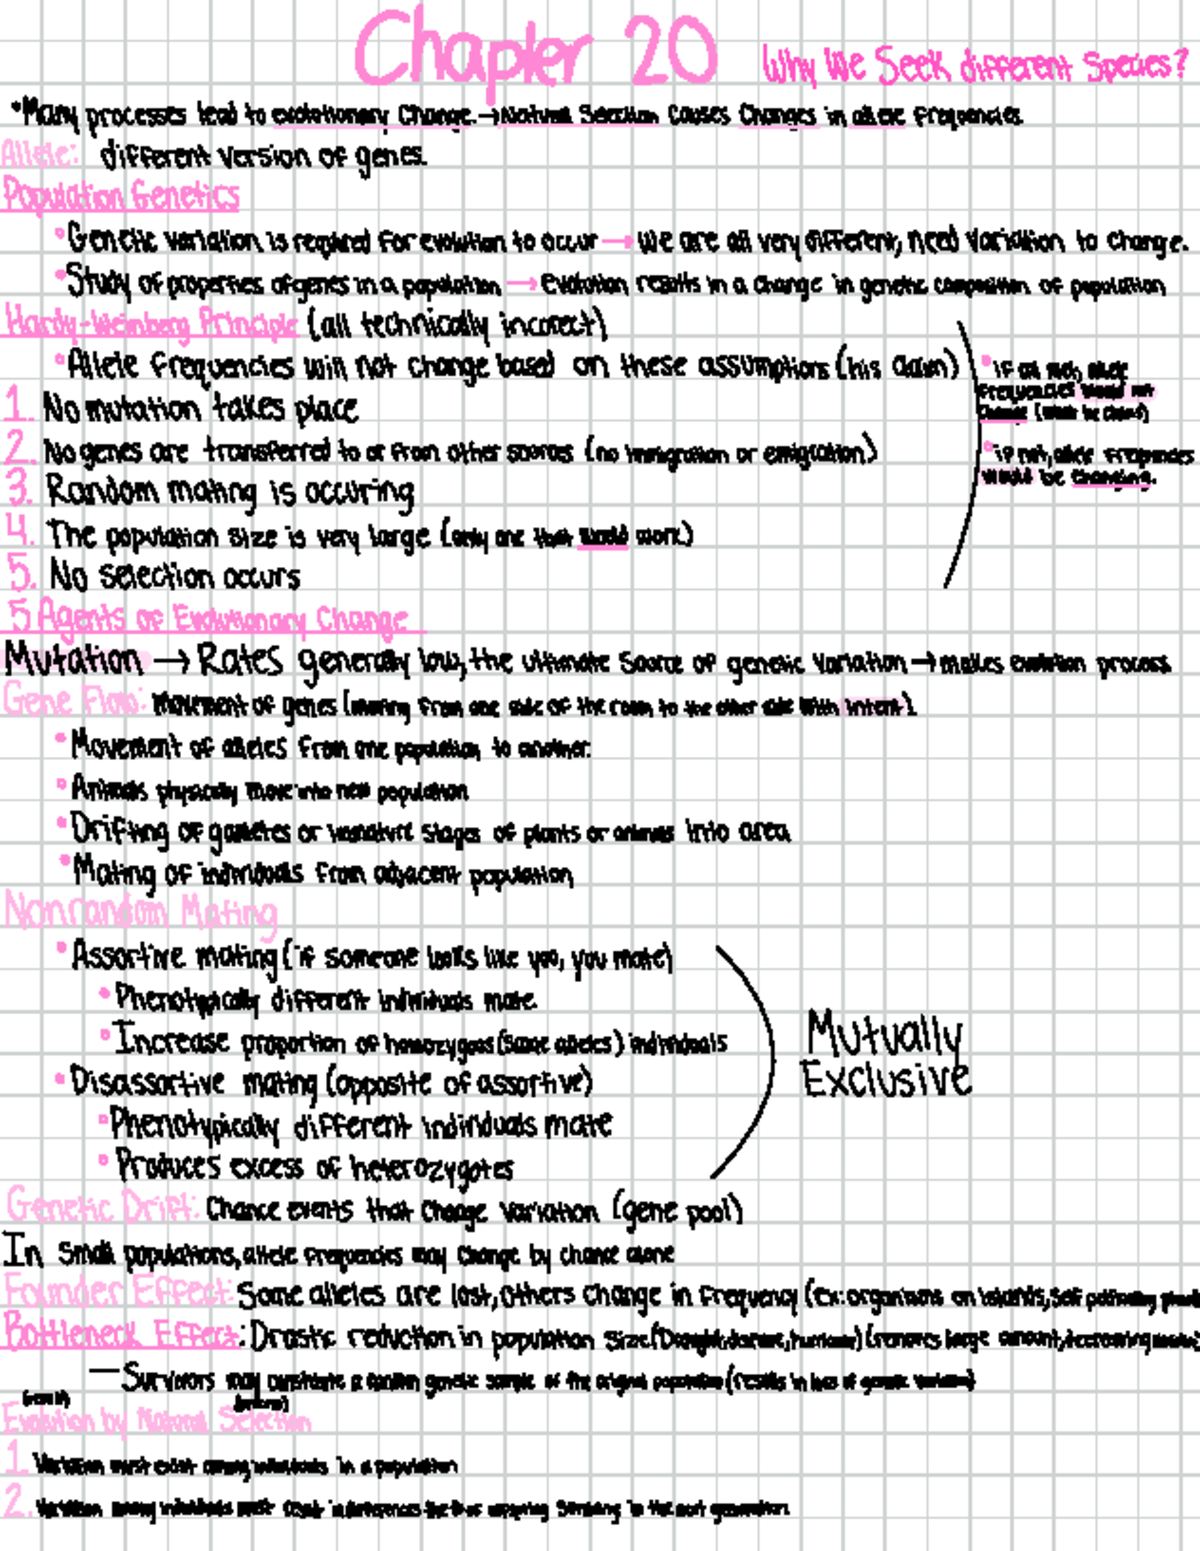 Chapter 20 Why We Seek different Species?
•Many processes lead to evolutionary Change.→Natural Selection Causes Changes in allele frequencies.
Allele: different version of genes.
Population Genetics
•Genetic variation is required for evolution to occur → we are all very different, need variation to change.
•Study of properties of genes in a population → Evolution results in a change in genetic composition of population
Hardy-Weinberg Principle (all technically incorect)
•Allele frequencies will not change based on these assumptions (his claim)
•if all met, allele
frequencies would not
change (what he claims)
•if not, allele frequencies
would be changing.
1. No mutation takes place
2. No genes are transferred to or from other sources (no immigration or emigration)
3. Random mating is occuring
4. The population size is very large (only one that would work)
5. No selection occurs
5 Agents of Evolutionary Change
Mutation → Rates generally low, the ultimate source of genetic variation → makes evolution process
Gene Flow: movement of genes (moving from one side of the room to the other side with intent).
•Movement of alleles from one population to another.
•Animals physically move into new population
•Drifting of gametes or immature stages of plants or animals into area
•Mating of individuals from adjacent population
Nonrandom Mating
•Assortive mating (if someone looks like you, you mate)
•Phenotypically different individuals mate
•Increase proportion of homozygous (same alleles) individuals
•Disassortive mating (opposite of assortive)
•Phenotypically different individuals mate
•Produces excess of heterozygotes
Mutually
Exclusive
Genetic Drift: Chance events that change variation (gene pool)
In small populations, allele frequencies may change by chance alone
Founder Effect: Some alleles are lost, others change in frequency (ex: organisms on islands, self
Bottleneck Effect: Drastic reduction in population size (Drought, disease, humans) (removes large amount,
— Survivors may constitute a random genetic sample of the original population (results in loss of genetic variation)
Evolution by Natural Selection
1. Variation must exist among individuals in a population
2. Variation among individuals must result in differences in the offspring surviving in the next generation.